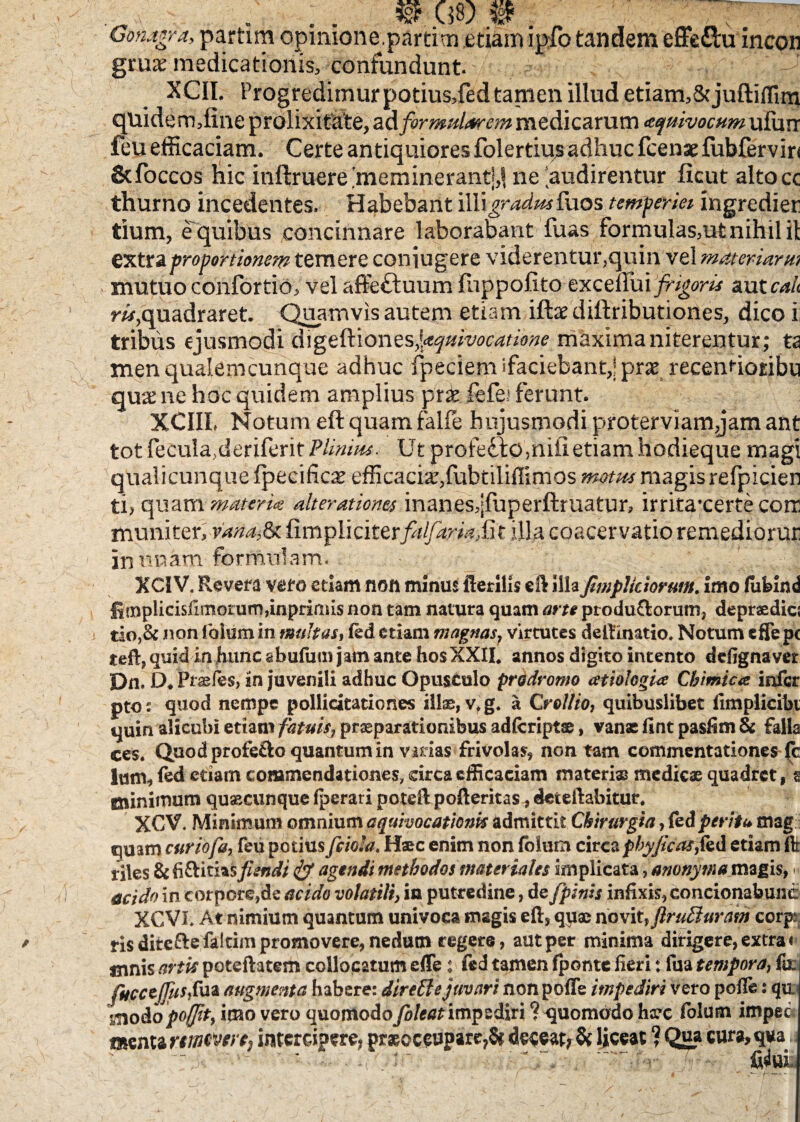 (38)
Gonagra, partim opinione, partim etiam ipso tandem effectu incon
gruæ medicationis, confundunt.
XCII. Progredimur potius, sed tamen illud etiam, & justissim
quidem, sine prolixitate, ad formularem medicarum æquivocum usum
seu efficaciam. Certe antiquiores solertius adhuc scenæ subservire
& soccos hic instruere meminerant, ne audirentur sicut alto co
thurno incedentes. Habebant illi gradus suos temperiei ingredien
tium, e quibus concinnare laborabant suas formulas, ut nihil il
extra proportionem temere coniugere viderentur, quin vel materiarum
mutuo consortio, vel affectuum supposito excessui frigoris aut calo
ris, quadraret. Quamvis autem etiam istæ distributiones, dico i
tribus ejusmodi digestiones, æquivocatione maxima niterentur; ta
men qualemcunque adhuc speciem faciebant, præ recentioribu
quæ ne hoc quidem amplius præ sese ferunt.
XCIII. Notum est quam false hujusmodi proterviam, jam ant
tot secula, deriserit Plinius. Ut profecto, nisi etiam hodieque magi
qualicunque specificæ efficaciæ, subtilissimos motus magis respicien
ti, quam materiæ alterationes inanes, superstruatur, irrita certe com
muniter, vana, & simpliciter falsaria, sit illa coacervatio remediorum
in unam formulam.
XCIV. Revera vero etiam non minus sterilis est illa simpliciorum, imo subind
simplicissimorum, inprimis non tam natura quam arte productorum, deprædica
tio, & non solum in multas, sed etiam magnas, virtutes destinatio. Notum esse po
test, quid in hunc abusum jam ante hos XXII. annos digito intento designaver
Dn. D. Præses, in juvenili adhuc Opusculo prodromo ætiologiæ Chimicæ inscr
pto: quod nempe pollicitationes illæ, v. g. à Crollio, quibuslibet simplicibu
quin alicubi etiam fatuis, præparationibus adscriptæ, vanæ sint passim & falla
ces. Quod profecto quantum in varias frivolas, non tam commentationes so
lum, sed etiam commendationes, circa efficaciam materiæ medicæ quadret, s
minimum quæcunque sperari potest posteritas, detestabitur.
XCV. Minimum omnium æquivocationis admittit Chirurgia, sed peritu mag
quam curiosa, seu potius sciola. Hæc enim non solum circa physicas, sed etiam st
riles & fictitias fiendi & agendi methodos materiales implicata, anonyma magis,
acido in corpore, de acido volatili, in putredine, de spinis infixis, concionabund
XCVI. At nimium quantum univoca magis est, quæ novit, structuram corpo
ris directe saltim promovere, nedum regere, aut per minima dirigere, extra
omnis artis potestatem collocatum esse; sed tamen sponte fieri: sua tempora, su
successus, sua augmenta habere: directe juvari non posse impediri vero posse: qu
modo possit, imo vero quomodo soleat impediri? quomodo hæc solum impec
menta removere, intercipere, præoccupare, & deceat, & liceat? Qua cura, qva
fidui